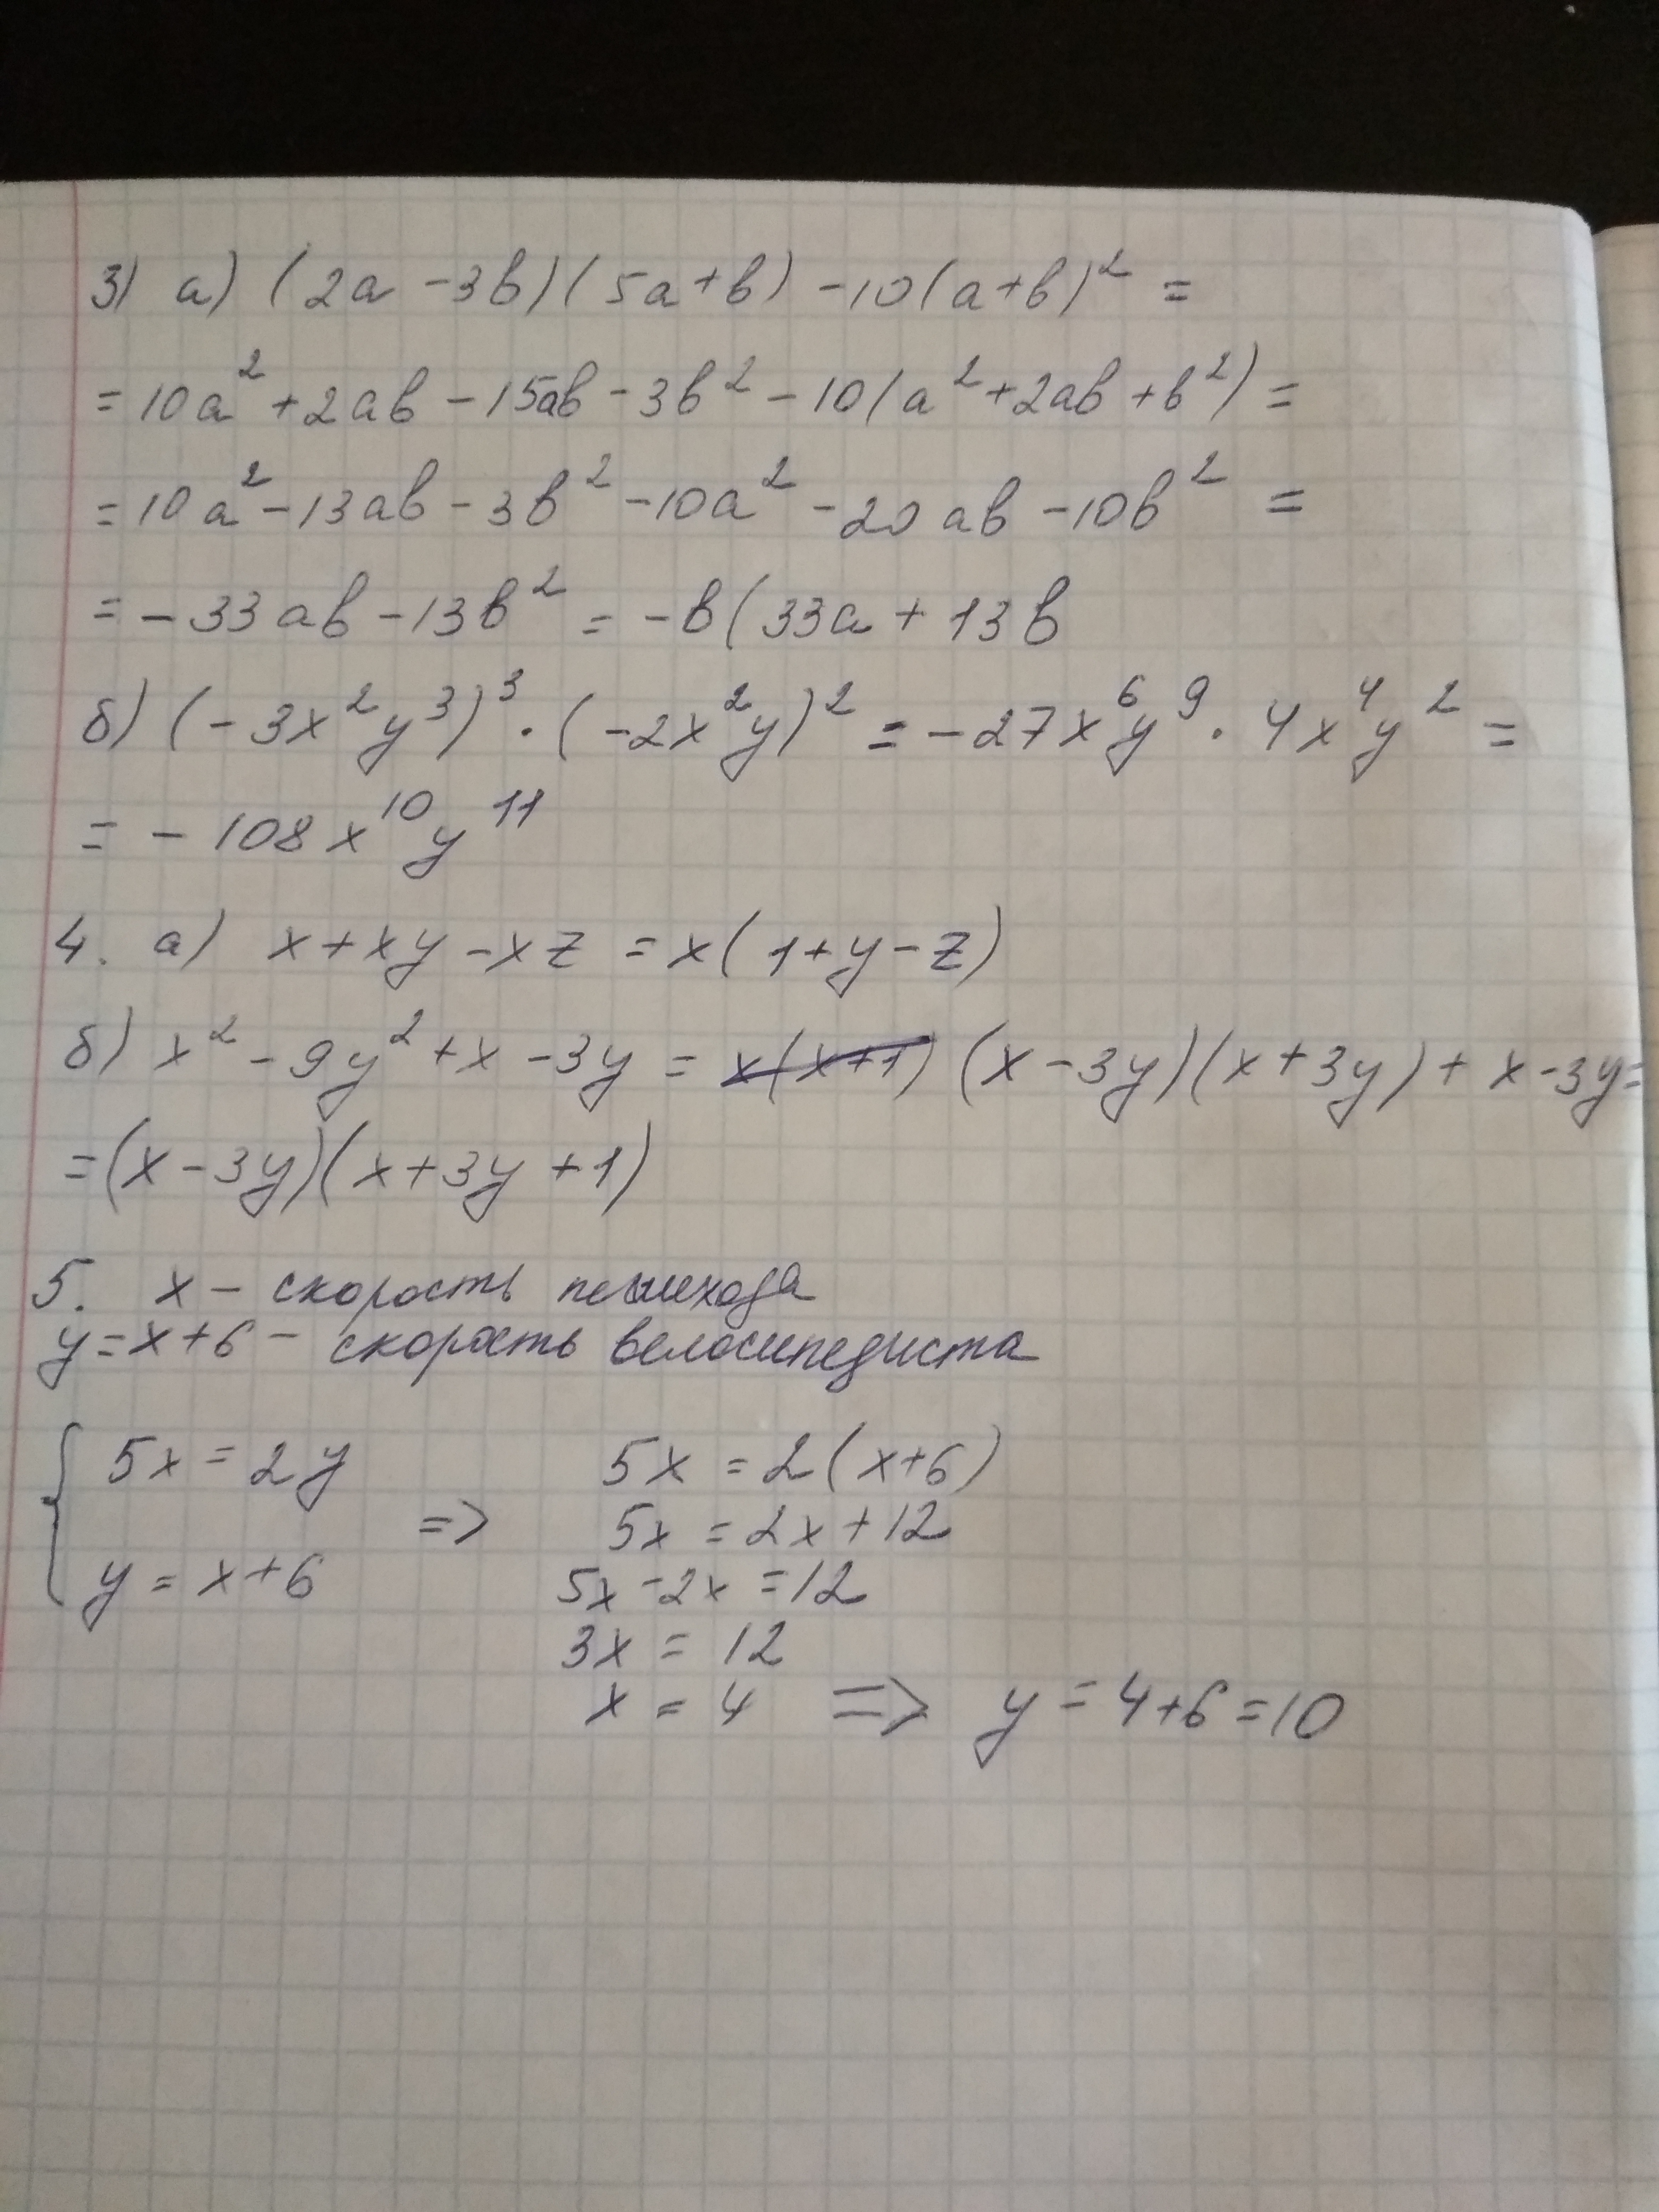 3) а) (2a - 3b)(5a + b) - 10(a + b)² =
= 10a² + 2ab - 15ab - 3b² - 10(a² + 2ab + b²) =
= 10a² - 13ab - 3b² - 10a² - 20ab - 10b² =
= - 33ab - 13b² = - b(33a + 13b
б) (- 3x²y³)³ · (-2x²y)² = - 27x⁶y⁹ · 4x⁴y² =
= - 108x¹⁰y¹¹
4. а) x + xy - xz = x(1 + y - z)
б) x² - 9y² + x - 3y = x(x+1) (x - 3y)(x + 3y) + x - 3y =
= (x - 3y)(x + 3y + 1)
5. x - скорость пешехода
y = x + 6 - скорость велосипедиста
{ 5x = 2y 5x = 2(x+6)
=> 5x = 2x + 12
y = x + 6 5x - 2x = 12
3x = 12
x = 4 => y = 4 + 6 = 10